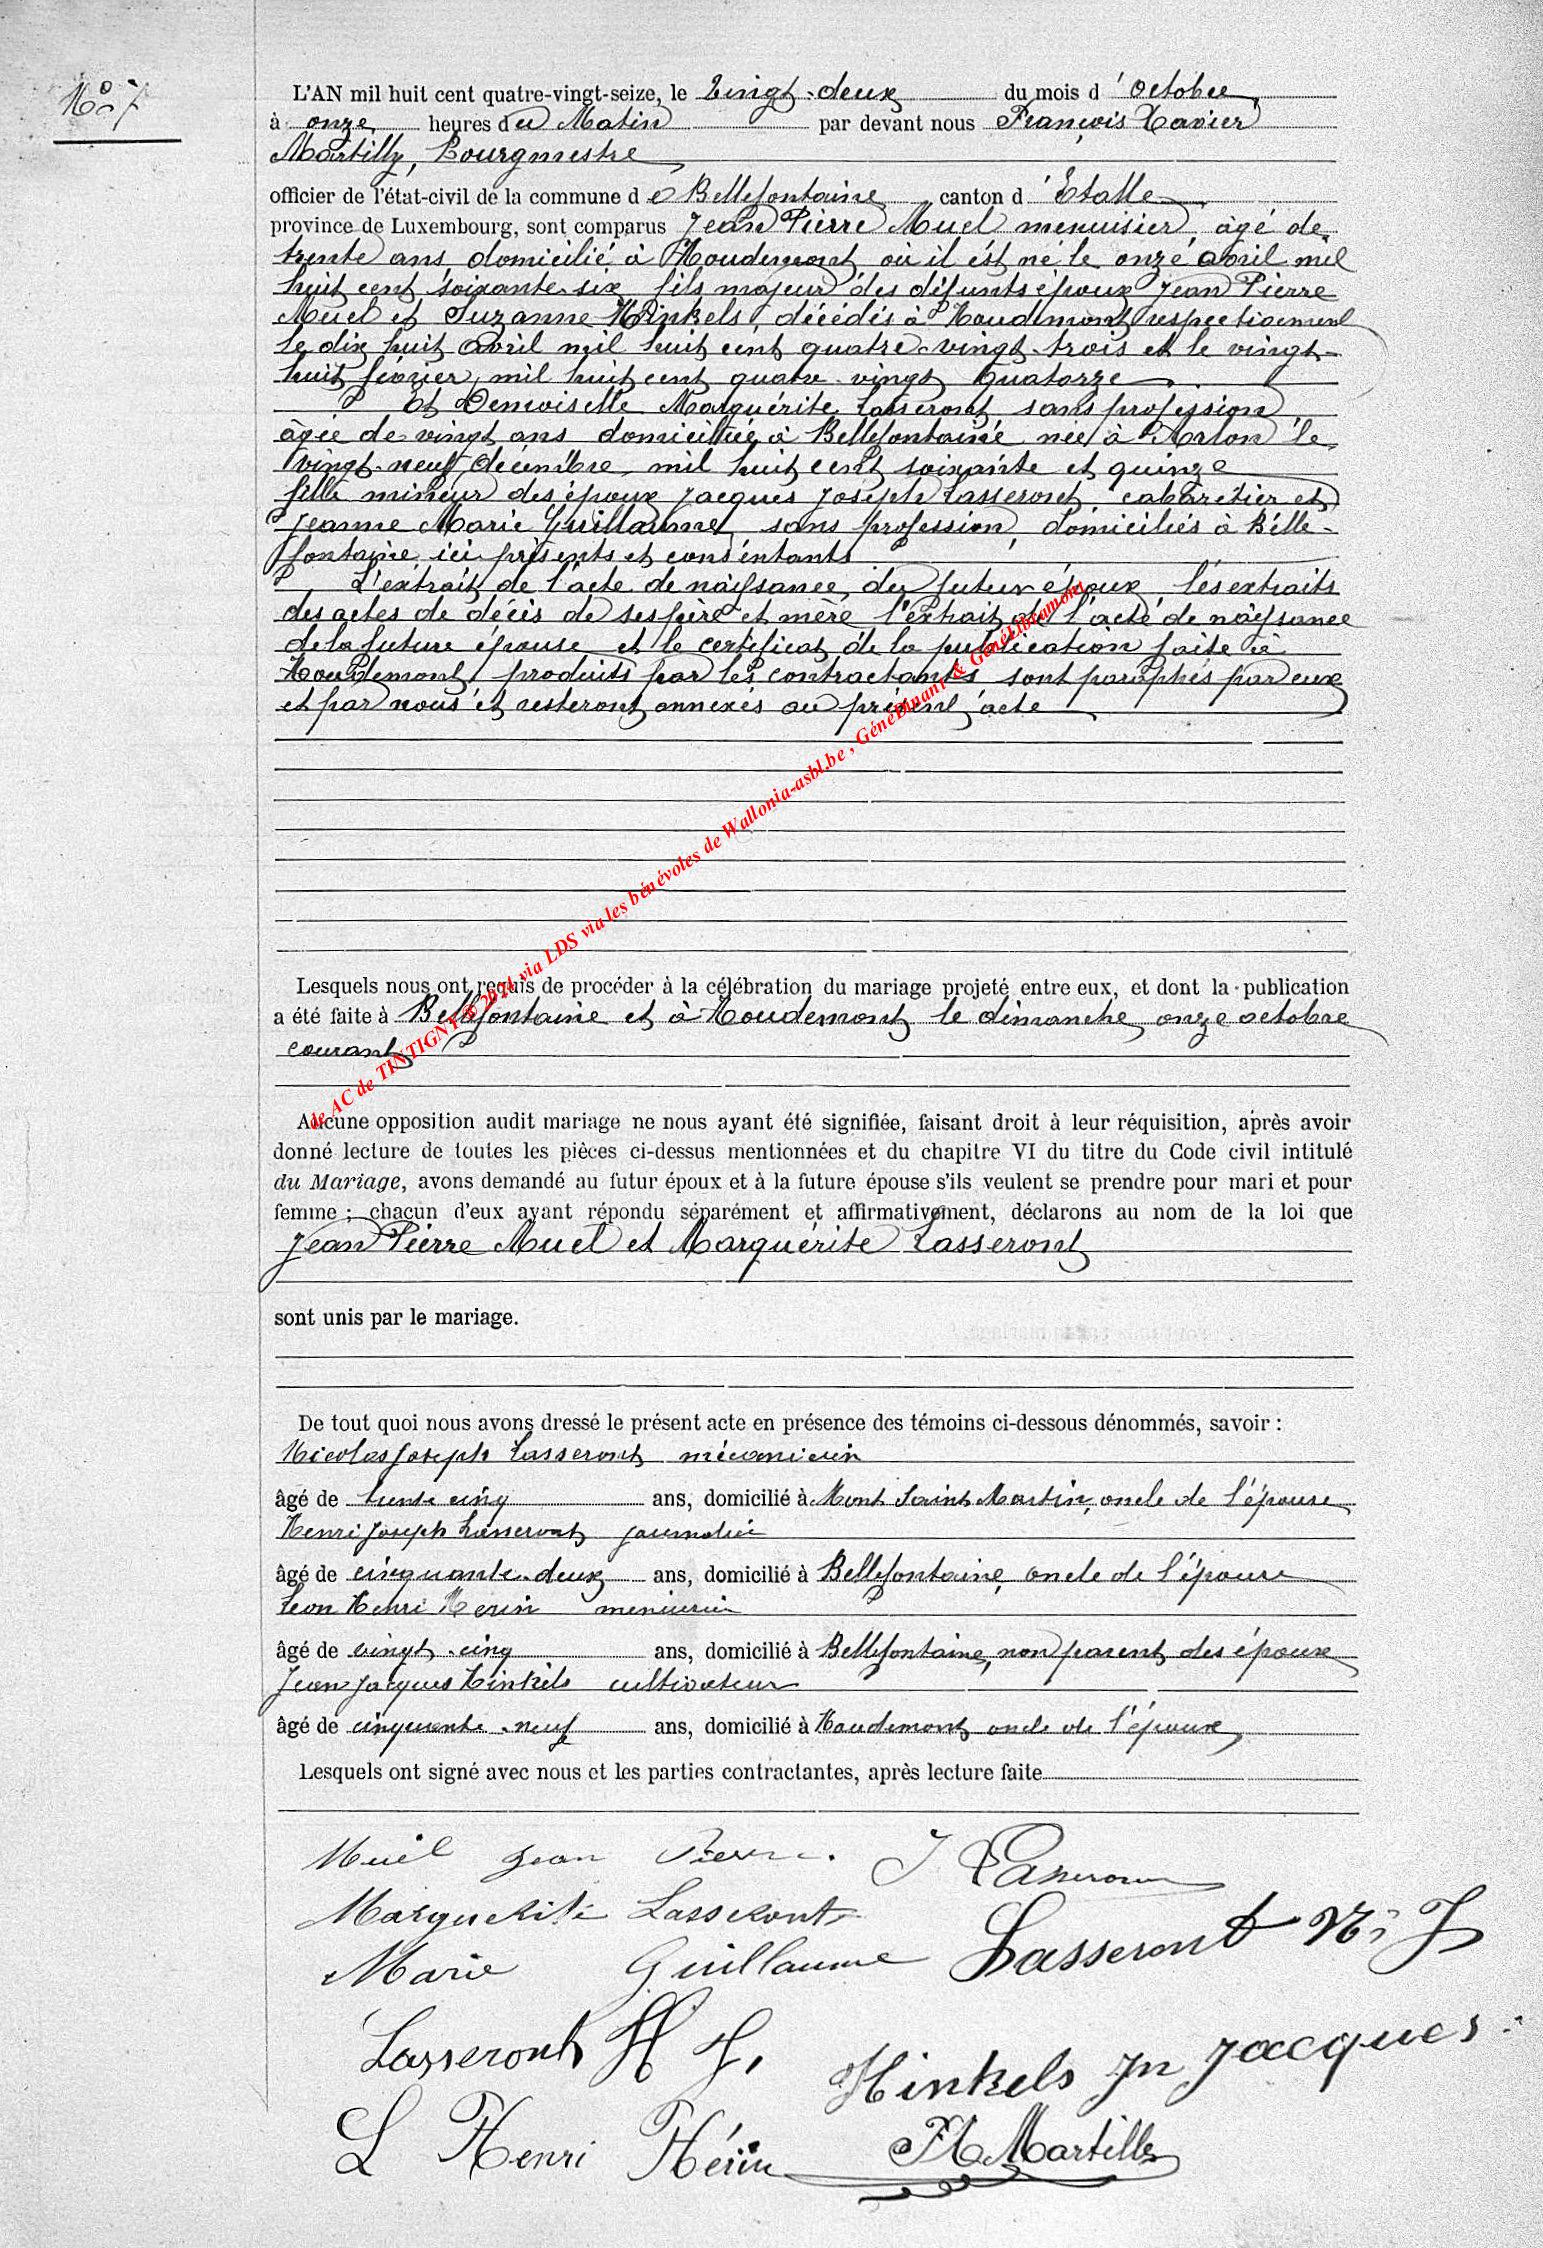 No 7
L'AN mil huit cent quatre-vingt-seize, le vingt-deux du mois d'octobre
à onze heures du Matin par devant nous François Xavier
Martilly, Bourgmestre
officier de l'état-civil de la commune de Bellefontaine canton d'Etalle
province de Luxembourg, sont comparus Jean Pierre Muel menuisier, âgé de
trente ans domicilié à Houdemont où il est né le onze avril mil
huit cent soixante-six fils majeur des défunts époux Jean Pierre
Muel et Suzanne Hinkels, décédés à Houdemont respectivement
le dix huit avril mil huit cent quatre-vingt-trois et le vingt-
huit février mil huit cent quatre-vingt quatorze
Et Demoiselle Marguérite Lasseront sans profession
âgée de vingt ans domiciliée à Bellefontaine née à Arlon le
vingt-neuf décembre mil huit cent soixante et quinze
fille mineur des époux Jacques Joseph Lasseront cabaretier et
Jeanne Marie Guillaume, sans profession, domiciliés à Belle-
fontaine ici présents et consentants
L'extrait de l'acte de naissance du futur époux, les extraits
des actes de décès de ses père et mère l'extrait de l'acte de naissance
de la future épouse et le certificat de la publication faite à
Houdemont, produits par les contractants sont paraphés par eux
et par nous et resteront annexés au présent acte
Lesquels nous ont requis de procéder à la célébration du mariage projeté entre eux, et dont la publication
a été faite à Bellefontaine et à Houdemont le dimanche onze octobre
courant
Aucune opposition audit mariage ne nous ayant été signifiée, faisant droit à leur réquisition, après avoir
donné lecture de toutes les pièces ci-dessus mentionnées et du chapitre VI du titre du Code civil intitulé
du Mariage, avons demandé au futur époux et à la future épouse s'ils veulent se prendre pour mari et pour
femme ; chacun d'eux ayant répondu séparément et affirmativement, déclarons au nom de la loi que
Jean Pierre Muel et Marguérite Lasseront
sont unis par le mariage.
De tout quoi nous avons dressé le présent acte en présence des témoins ci-dessous dénommés, savoir :
Nicolas Joseph Lasseront mécanicien
âgé de trente cinq ans, domicilié à Mont Saint Martin, oncle de l'épouse
Henri Joseph Lasseront journalier
âgé de cinquante-deux ans, domicilié à Bellefontaine, oncle de l'épouse
Léon Henri Herin menuisier
âgé de vingt-cinq ans, domicilié à Bellefontaine, non parent des époux
Jean Jacques Hinkels cultivateur
âgé de cinquante-neuf ans, domicilié à Houdemont oncle de l'époux
Lesquels ont signé avec nous et les parties contractantes, après lecture faite
Muël Jean Pierre. J Lasseront
Marguerite Lasseront
Marie Guillaume Lasseront Ni J
Lasseront H J.
Hinkels Jn Jacques
L Henri Hérin FX Martilly
de AC de TINTIGNY © 2024 via LDS via les bénévoles de Wallonia-asbl.be , GénéDinant & GénéLibramont